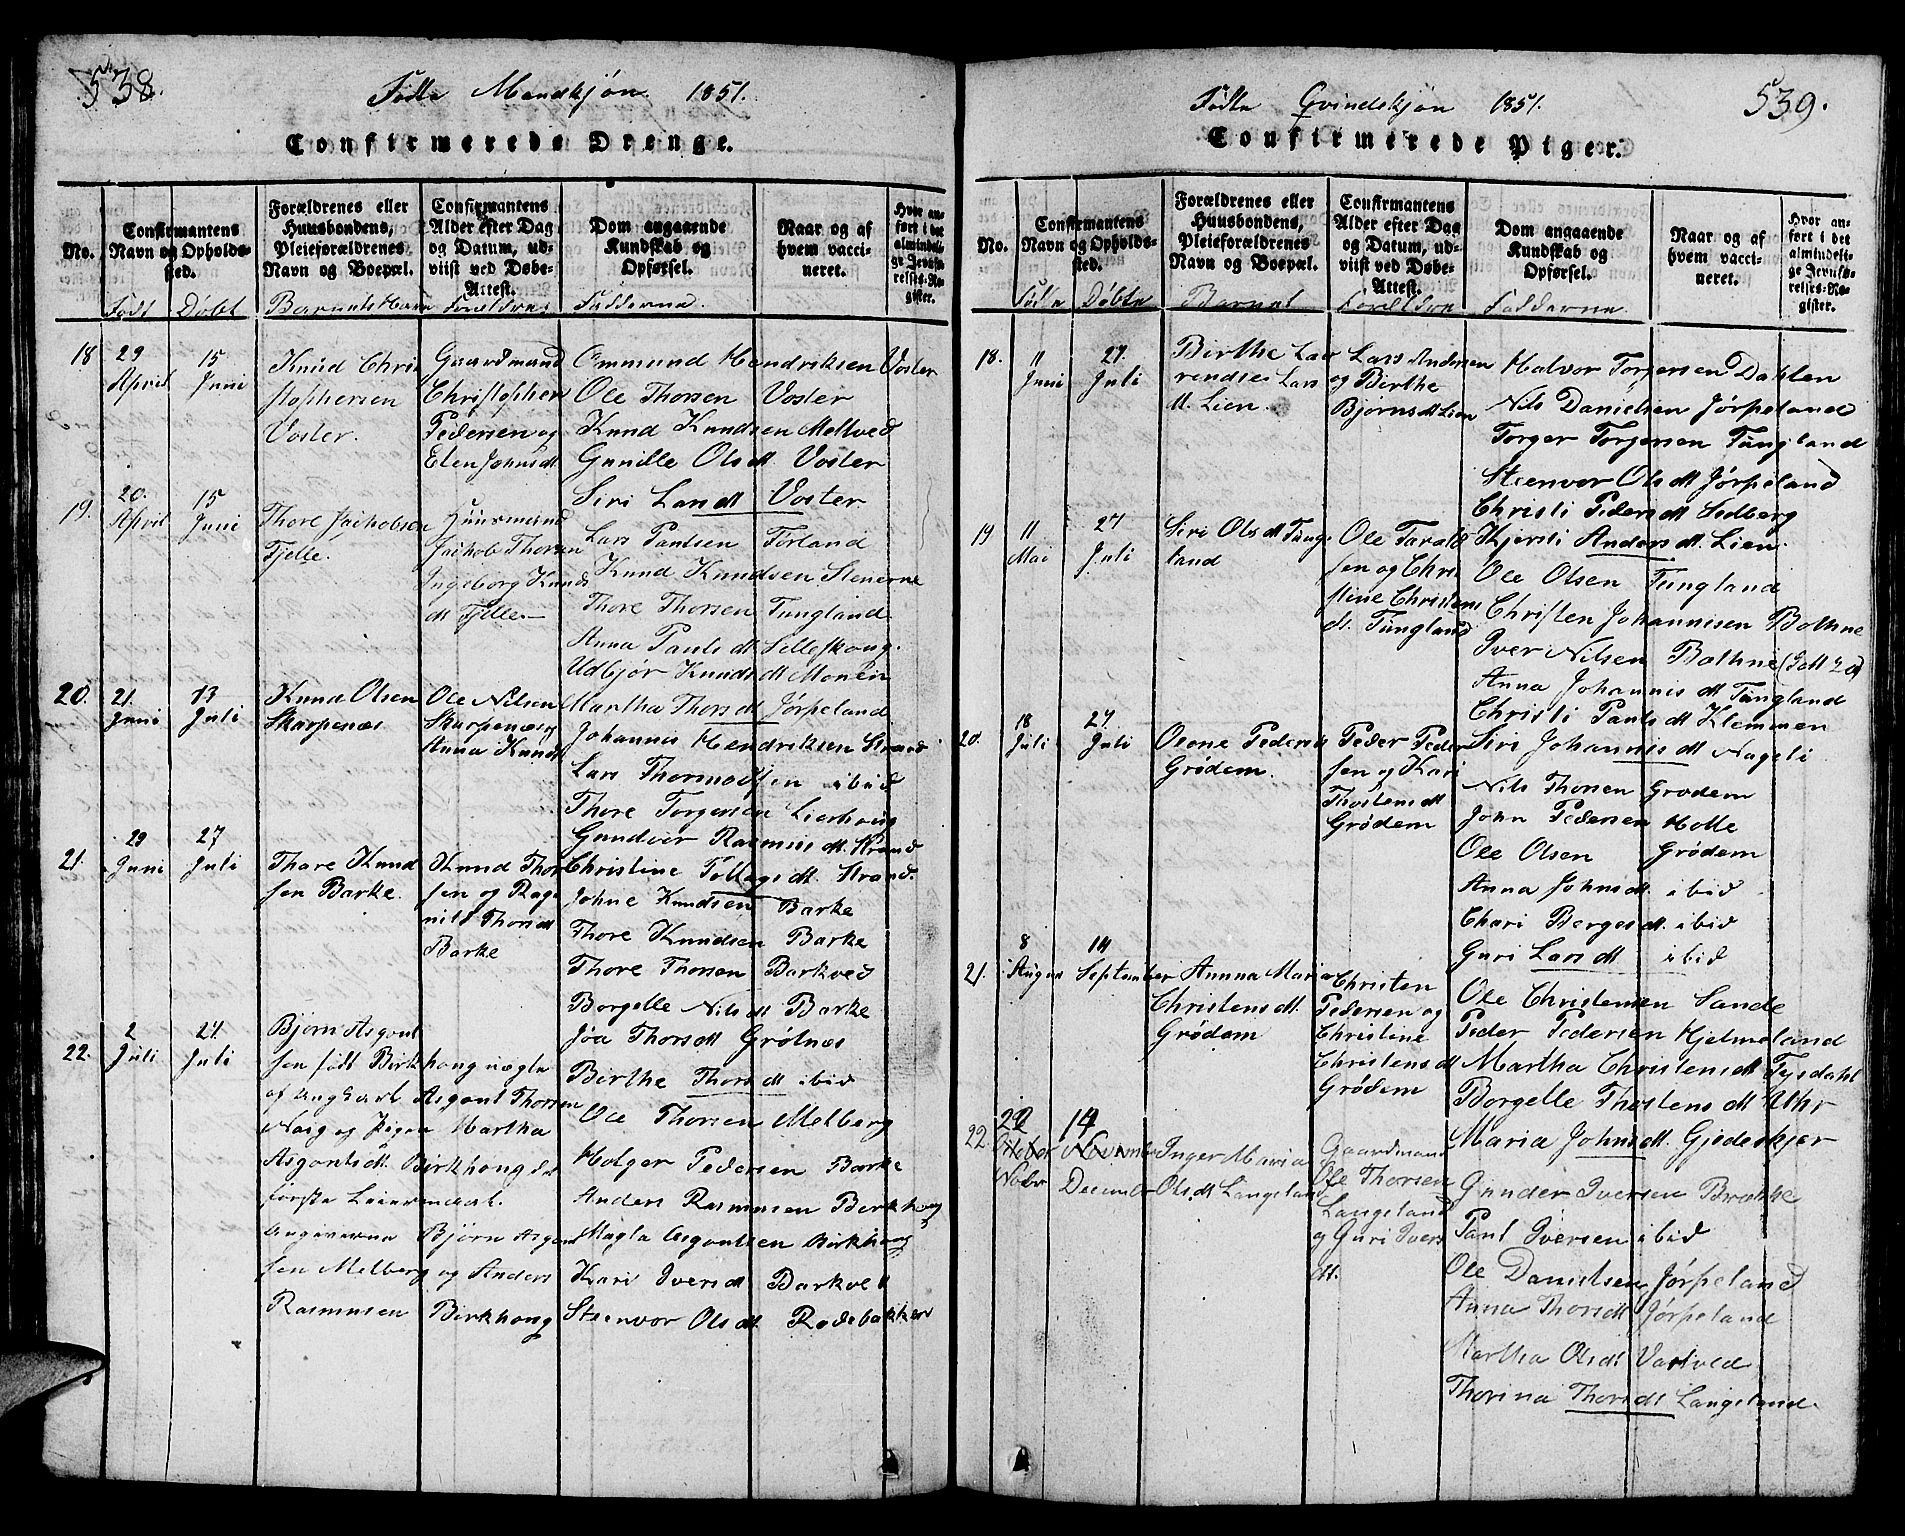 538.
Fødte Mandkjøn 1851.
Confirmerede Drenge.
No.
Confirmantens Navn og Opholdssted.
Forældrenes eller Huusbondens, Pleieforældrenes Navn og Boepæl.
Confirmantens Alder efter Dag og Datum, udviist ved Døbe-Attest.
Dom angaaende Kundskab og Opførsel.
Naar og af hvem vaccineret.
Hvor anført i det almindelige Jevnførelses-Register.
Født Døbt Barnets Navn Foreldre Fadderne
18 29 April 15 Juni
Knud Chri
stophersen
Voster.
Gaardmand
Christopher
Pedersen og
Elen Johnsdt
Ommund Hendriksen Voster
Ole Thorsen Voster
Knud Knudsen Meltved
Gunille Olsdt Voster
Siri Larsdt Voster
19. 20. April 15 Juni
Thore Jachobsen
Fjelle.
Huusmand
Jachob Thorsen
Ingeborg Knuds
dt Fjelle
Lars Paulsen Førland
Knud Knudsen Stenerne
Thore Thorsen Tungland
Anna Paulsdt Selleskong.
Udbjør Knudsdt Monein
20. 21. Juni 13 Juli
Knud Olsen
Skarpenæs
Ole Nilsen
Skarpenæs og
Anna Knuds
Martha Thorsdt Jørpeland
Johannis Hendriksen Strand
Lars Thormodsen ibid
Thore Torgersen Lierhoug
Gundvor Rasmusdt Strand
21. 29 Juni 27 Juli
Thore Knud
sen Barke.
Knud Thor
sen og Rag
nild Thorsdt
Barke
Christine Tollagsdt. Strand.
Johne Knudsen Barke
Thore Knudsen Barke
Thore Thorsen Barkved
Borgelle Nilsdt Barke
Jøa Thorsdt Grøtnæs
22. 2 Juli 27 Juli
Bjørn Asgout
sen født Birkhoug uægte
af Ungkarl Asgout Thorsen
Naig og Pigen Martha
Asgoutsdt Birkhoug det
første Leiermaal.
Angiverne Bjørn Asgout
sen Melberg og Anders
Rasmusen Birkhoug
Birthe Thorsdt ibid
Ole Thorsen Melberg
Holger Pedersen Barke
Anders Rasmusen Birkhoug
Magla Asgoutsen Birkhoug
Kari Iversdt Barkved
Steenvor Olsdt. Rødebakken
539.
Fødte Qvindekjøn 1851.
Confirmerede Piger.
No.
Confirmantens Navn og Opholdssted.
Forældrenes eller Huusbondens, Pleieforældrenes Navn og Boepæl.
Confirmantens Alder efter Dag og Datum, udviist ved Døbe-Attest.
Dom angaaende Kundskab og Opførsel.
Naar og af hvem vaccineret.
Hvor anført i det almindelige Jevnførelses-Register.
Fødte Døbte Barnet Foreldre Fadderne
18. 11 Juni 27. Juli
Birthe Lau
rendse Lars
dt. Lien.
Lars Andersen
og Birthe
Bjørnsdt Lien
Halvor Torgersen Dahlen
Nils Danielsen Jørpeland
Torger Torgersen Tungland
Steenvor Olsdt Jørpeland
Christi Pedersdt Sedberg
19 11 Mai 27 Juli
Siri Olsdt Tung
land
Ole Tarald
sen og Chri
stine Christens
dt. Tungland
Kjersti Andersdt. Lien.
Ole Olsen Tungland
Christen Johannisen Bothne
Iver Nilsen Bothne (Fadt 20)
Anna Johannisdt Tungland
Christi Paulsdt Klemmen
20. 18 Juli 27 Juli
Oleone Pedersdt
Grødem.
Peder Peder
sen og Kari
Thostensdt
Grødem
Siri Johannisdt Nageli
Nils Thorsen Grødem
John Pedersen Holle
Ole Olsen Grødem
Anna Johnsdt. ibid
Chari Bergesdt. ibid
Guri Larsdt ibid
21. 8 August 14 September
Annna Maria
Christensdt.
Grødem
Christen
Pedersen og
Christine
Christensdt
Grødem
Ole Christensen Sande
Peder Pedersen Hjelmeland
Martha Christensdt Tysdahl
Borgelle Thostensdt Uthr
Maria Johnsdt. Gjedeskjer
22. 22 October Novbr 14 November December
Inger Maria
Olsdt Langeland
Gaardmand
Ole Thorsen
Langeland
og Guri Ivers
dt.
Gunder Iversen Brække
Paul Iversen ibid
Ole Danielsen Jørpeland
Anna Thorsdt Jørpeland
Martha Olsdt Vastved
Thorina Thorsdt Langeland.